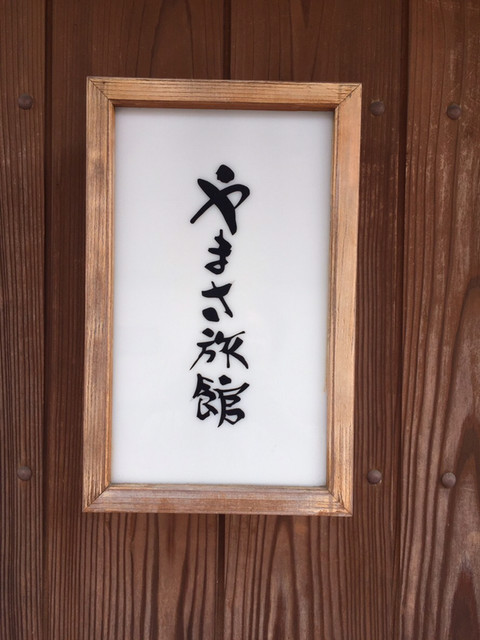 やまさ旅館